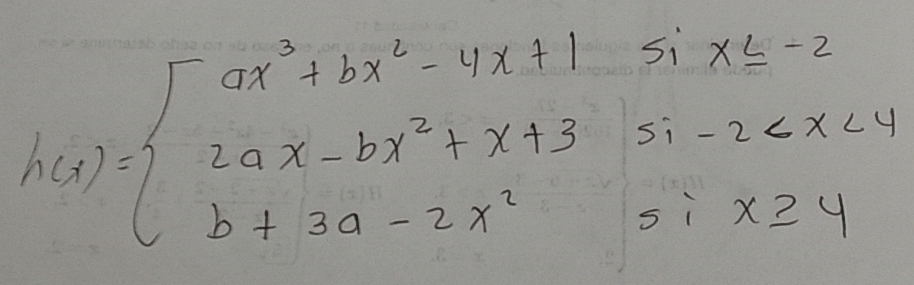 ax³ + bx² - 4x + 1 si x ≤ -2
h(x) = { 2ax - bx² + x + 3 si -2 < x < 4
b + 3a - 2x² si x ≥ 4